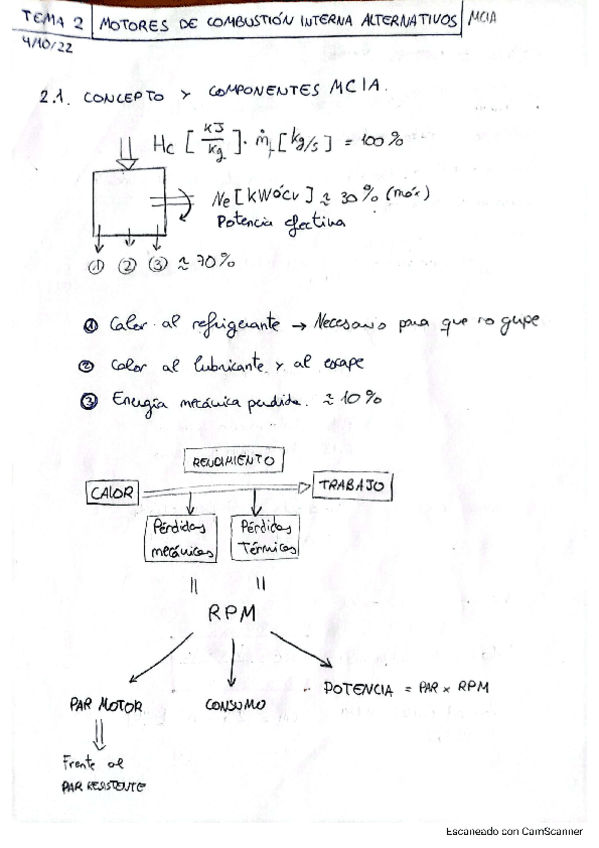 TEMA 2 MOTORES DE COMBUSTIÓN INTERNA ALTERNATIVOS MCIA
4/10/22
2.1. CONCEPTO Y COMPONENTES MCIA.
Hc [kJ/kg] · ṁf [kg/s] = 100%
Ne [kW ó cv] ≈ 30% (máx)
Potencia efectiva
① ② ③ ≈ 70%
① Calor al refrigerante → Necesario para que no gripe
② Calor al lubricante y al escape
③ Energía mecánica perdida. ≈ 10%
RENDIMIENTO
CALOR TRABAJO
Pérdidas mecánicas Pérdidas Térmicas
RPM
PAR MOTOR CONSUMO POTENCIA = PAR x RPM
Frente al
PAR RESISTENTE
Escaneado con CamScanner